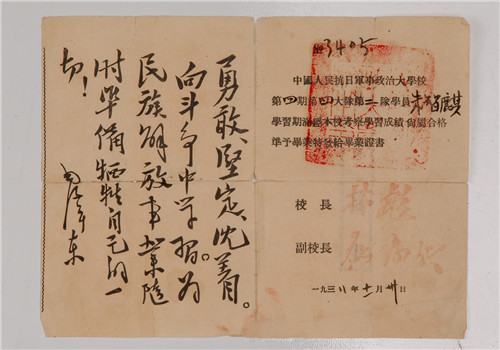 勇敢、堅定、沈着。
向斗争中学習。为
民族解放事業随
时準備牺牲自己的一
切！
毛澤东
3405
中國人民抗日軍事政治大學校
第四期第四大隊第二隊學員朱
學習期滿經本校考察學習成績尚屬合格
準予畢業特發給畢業證書
校長 林彪
副校長
一九三八年十二月卅日